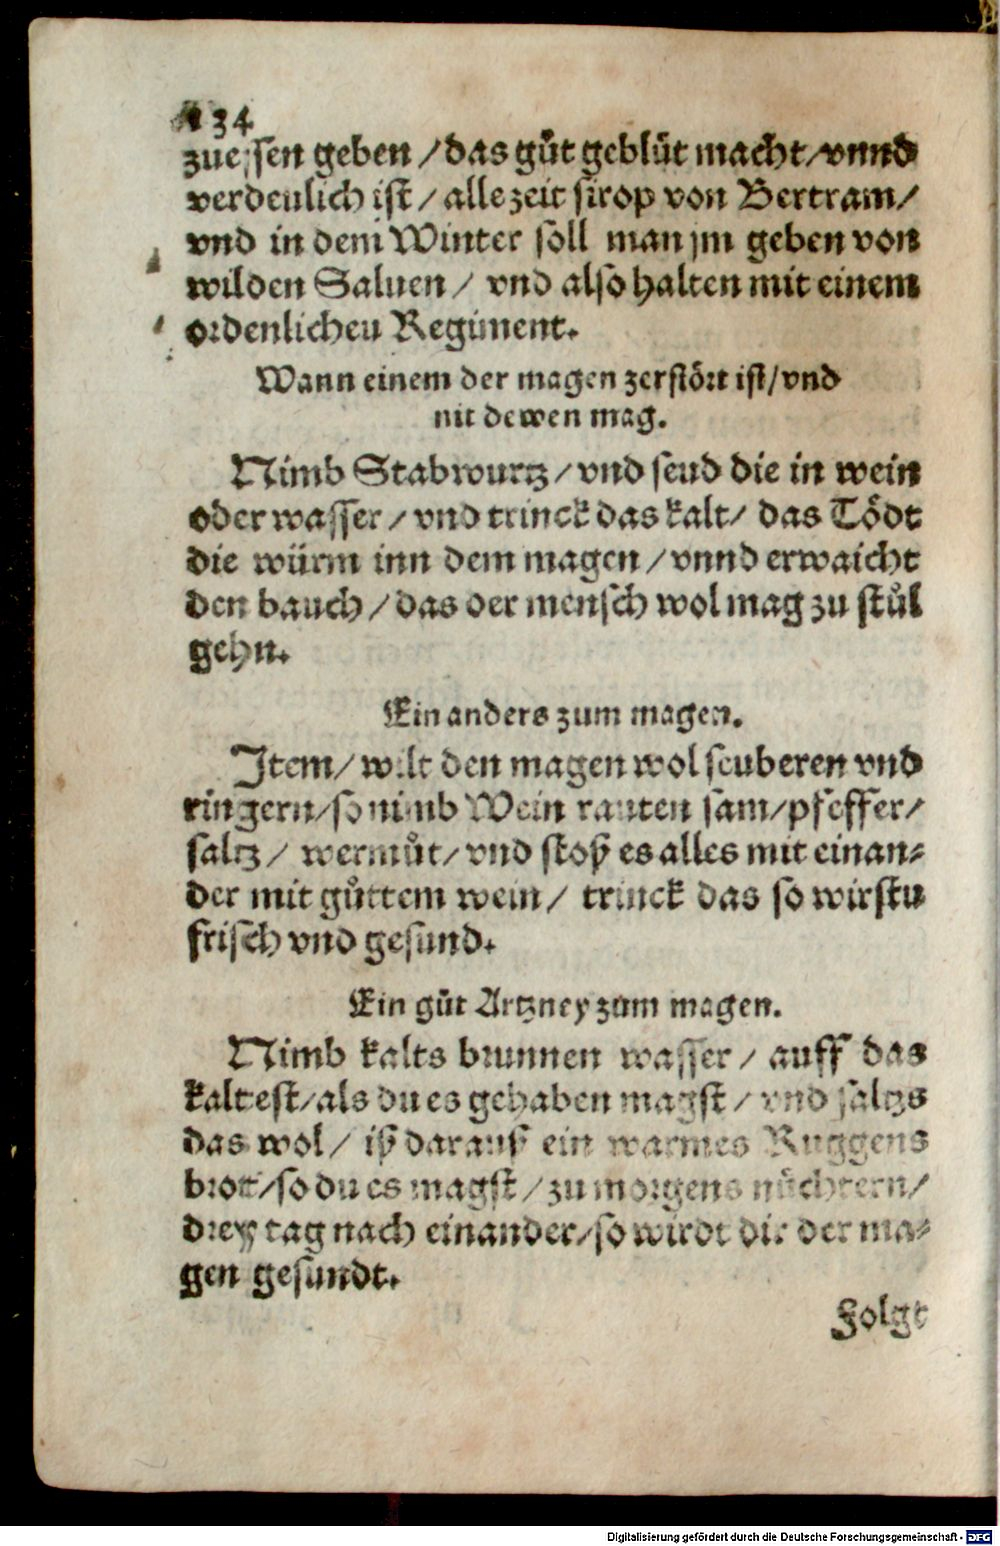 134
zuessen geben / das gůt geblůt macht / vnnd
verdeulich ist / alle zeit sirop von Bertram /
vnd in dem Winter soll man jm geben von
wilden Saluen / vnd also halten mit einem
ordenlichen Regiment.
Wann einem der magen zerstört ist / vnd
nit dewen mag.
Nimb Stabwurtz / vnd seud die in wein
oder wasser / vnd trinck das kalt / das Tödt
die würm inn dem magen / vnnd erwaicht
den bauch / das der mensch wol mag zu stůl
gehn.
Ein anders zum magen.
Item / wilt den magen wol seuberen vnd
ringern / so nimb Wein rauten sam / pfeffer /
saltz / wermůt / vnd stoß es alles mit einan-
der mit gůttem wein / trinck das so wirstu
frisch vnd gesund.
Ein gůt Artzney zum magen.
Nimb kalts brunnen wasser / auff das
kaltest / als du es gehaben magst / vnd saltzs
das wol / iß darauß ein warmes Ruggens
brott / so du es magst / zu morgens nůchtern /
drey tag nach einander / so wirdt dir der ma-
gen gesundt.
Folgt
Digitalisierung gefördert durch die Deutsche Forschungsgemeinschaft - DFG